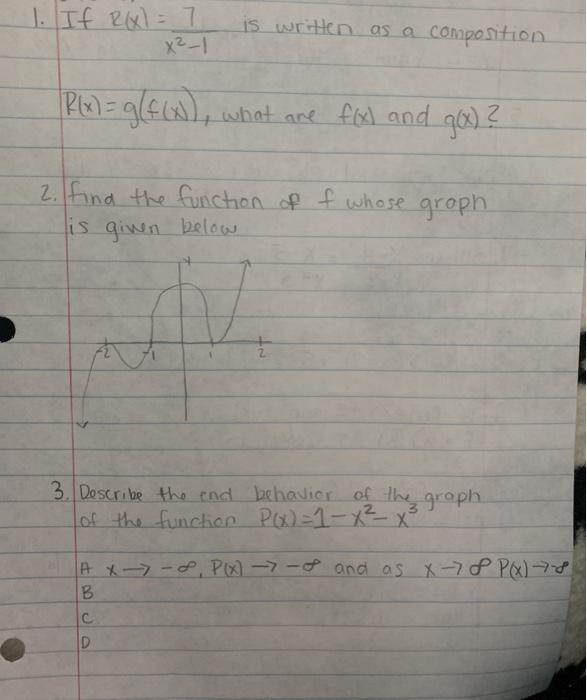 1. If R(x) = 7
x²-1
is written as a composition
R(x) = g(f(x)), what are f(x) and g(x)?
2. find the function of f whose graph
is given below
-2 -1 1 2
3. Describe the end behavior of the graph
of the function P(x) = 1 - x² - x³
A x → -∞, P(x) → -∞ and as x → ∞ P(x) → -∞
B
C
D